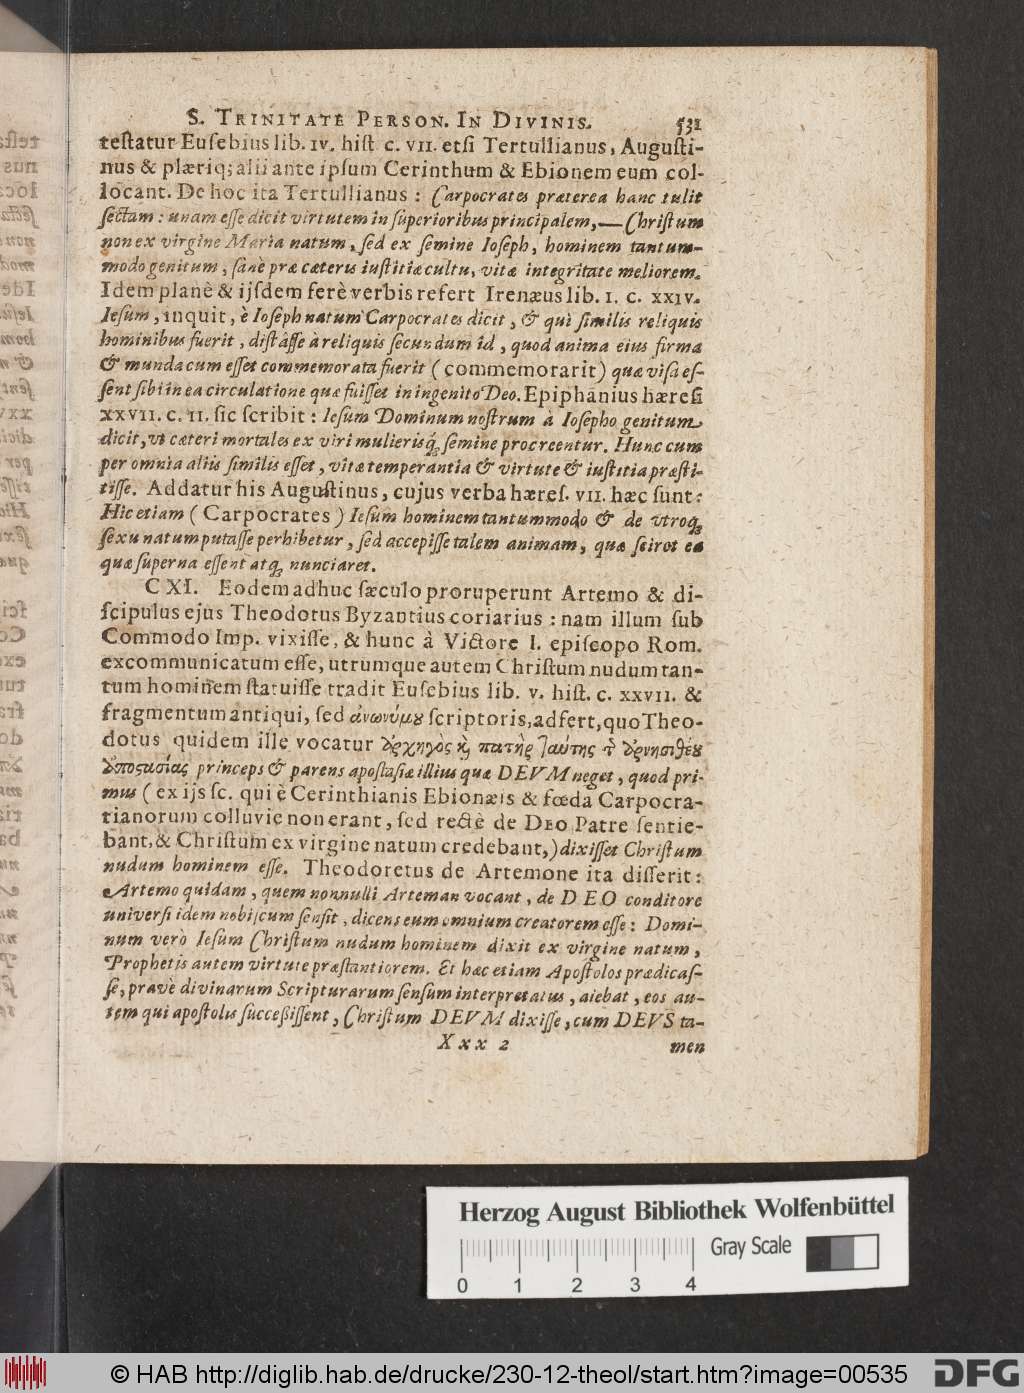 S. TRINITATE PERSON. IN DIVINIS. 531
testatur Eusebius lib. IV. hist c. VII. etsi Tertullianus, Augusti-
nus & plæriq; alii ante ipsum Cerinthum & Ebionem eum col-
locant. De hoc ita Tertullianus: Carpocrates præterea hanc tulit
sectam: unam esse dicit virtutem in superioribus principalem,—Christum
non ex virgine Maria natum, sed ex semine Ioseph, hominem tantum-
modo genitum, sanè præ cæteris iustitiæ cultu, vitæ integritate meliorem.
Idem planè & ijsdem ferè verbis refert Irenæus lib. I. c. XXIV.
Iesum, inquit, è Ioseph natum Carpocrates dicit, & qui similis reliquis
hominibus fuerit, distâsse à reliquis secundum id, quod anima eius firma
& munda cum esset commemorata fuerit (commemorarit) quæ visa es-
sent sibi in ea circulatione quæ fuisset in ingenito Deo. Epiphanius hæresi
XXVII. c. II. sic scribit: Iesum Dominum nostrum à Iosepho genitum
dicit, vt cæteri mortales ex viri mulierisq́; semine procreentur. Hunc cum
per omnia aliis similis esset, vitæ temperantia & virtute & iustitia præsti-
tisse. Addatur his Augustinus, cujus verba hæres. VII. hæc sunt:
Hic etiam (Carpocrates) Iesum hominem tantummodo & de vtroq;
sexu natum putasse perhibetur, sed accepisse talem animam, qua sciret ea
quæ superna essent atq; nunciaret.
CXI. Eodem adhuc sæculo proruperunt Artemo & di-
scipulus ejus Theodotus Byzantius coriarius: nam illum sub
Commodo Imp. vixisse, & hunc à Victore I. episcopo Rom.
excommunicatum esse, utrumque autem Christum nudum tan-
tum hominem statuisse tradit Eusebius lib. V. hist. c. XXVII. &
fragmentum antiqui, sed ἀνωνύμου scriptoris, adfert, quo Theo-
dotus quidem ille vocatur ἀρχηγὸς κὶ πατὴρ ταύτης τ̃ ἀρνησιθέου
ἀποστασίας princeps & parens apostasiæ illius quæ DEVM neget, quod pri-
mus (ex ijs sc. qui è Cerinthianis Ebionæis & fœda Carpocra-
tianorum colluvie non erant, sed rectè de DEO Patre sentie-
bant, & Christum ex virgine natum credebant,) dixisset Christum
nudum hominem esse. Theodoretus de Artemone ita disserit:
Artemo quidam, quem nonnulli Arteman vocant, de DEO conditore
universi idem nobiscum sensit, dicens eum omnium creatorem esse: Domi-
num verò Iesum Christum nudum hominem dixit ex virgine natum,
Prophetis autem virtute præstantiorem. Et hæc etiam Apostolos prædicas-
se, prave divinarum Scripturarum sensum interpretatus, aiebat, eos au-
tem qui apostolis successissent, Christum DEVM dixisse, cum DEVS ta-
Xxx 2 men
Herzog August Bibliothek Wolfenbüttel
Gray Scale
0 1 2 3 4
© HAB http://diglib.hab.de/drucke/230-12-theol/start.htm?image=00535 DFG